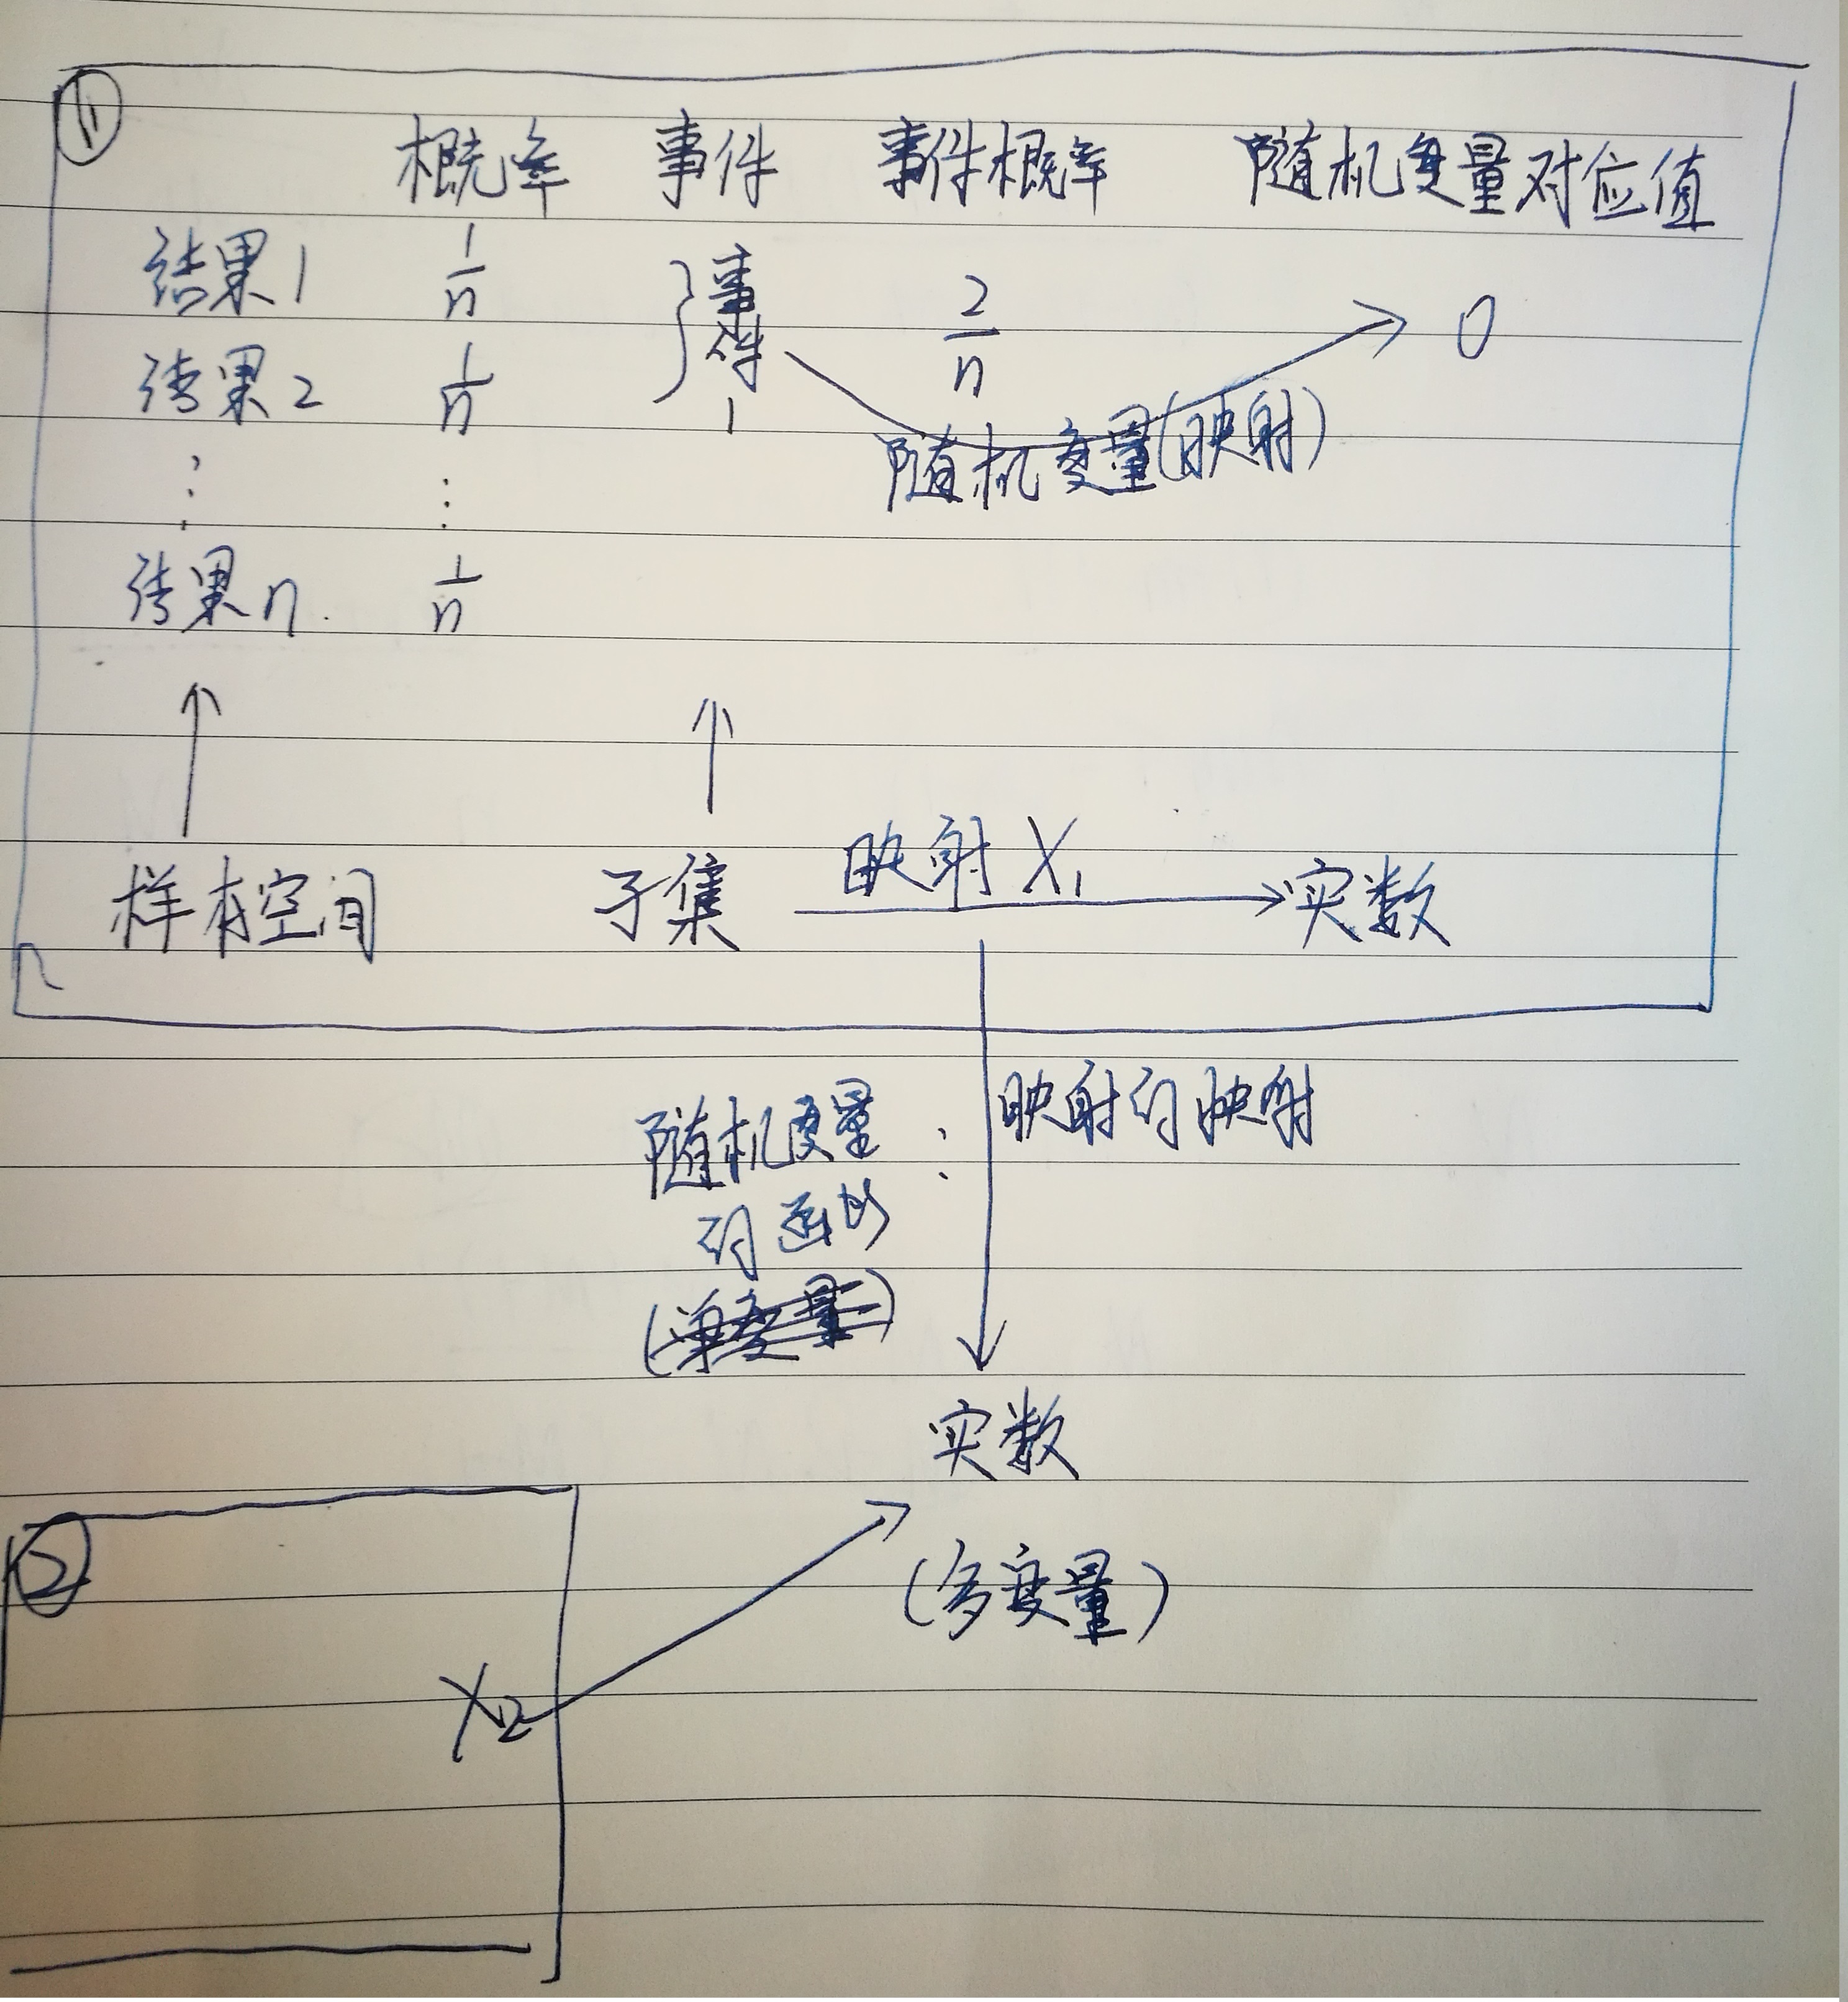 ①
概率 事件 事件概率 随机变量对应值
结果1 1/n } 事件1 2/n 0
结果2 1/n
随机变量(映射)
⋮ ⋮
结果n. 1/n
样本空间 子集 映射 X₁ 实数
随机变量的函数 : 映射的映射
实数
②
(多变量)
X₂